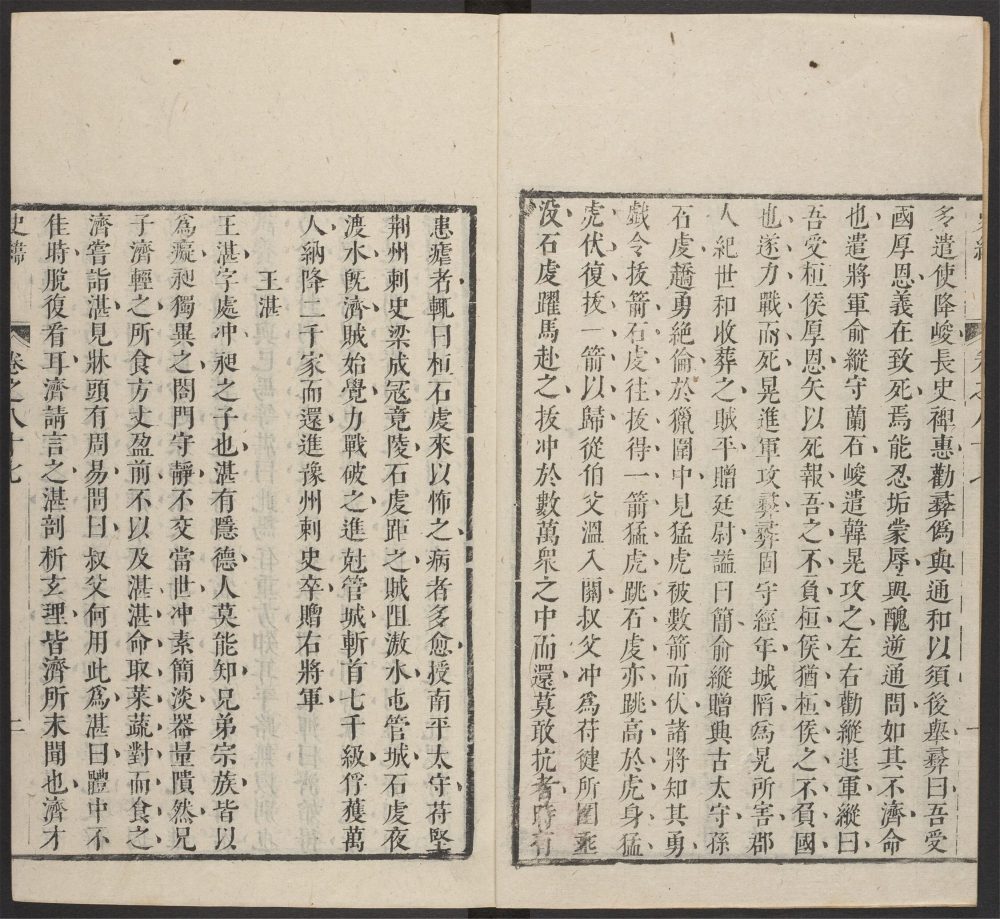 多遣使降峻長史裨惠勸彞僞與通和以須後舉彞曰吾受
國厚恩義在致死焉能忍垢蒙辱與醜逆通問如其不濟命
也遣將軍俞縱守蘭石峻遣韓晃攻之左右勸縱退軍縱曰
吾受桓侯厚恩矢以死報吾之不負桓侯猶桓侯之不負國
也遂力戰而死晃進軍攻彞彞固守經年城陷爲晃所害郡
人紀世和收葬之賊平贈廷尉諡曰簡俞縱贈興古太守孫
石虔趫勇絶倫於獵圍中見猛虎被數箭而伏諸將知其勇
戲令拔箭石虔往拔得一箭猛虎跳石虔亦跳高於虎身猛
虎伏復拔一箭以歸從伯父溫入關叔父沖爲苻健所圍垂
没石虔躍馬赴之拔冲於數萬衆之中而還莫敢抗者時有
患瘧者輒曰桓石虔來以怖之病者多愈授南平太守苻堅
荆州刺史梁成寇竟陵石虔距之賊阻滶水屯管城石虔夜
渡水旣濟賊始覺力戰破之進尅管城斬首七千級俘獲萬
人納降二千家而還進豫州刺史卒贈右將軍
王湛
王湛字處冲昶之子也湛有隱德人莫能知兄弟宗族皆以
爲癡昶獨異之閤門守靜不交當世冲素簡淡器量隤然兄
子濟輕之所食方丈盈前不以及湛湛命取菜蔬對而食之
濟嘗詣湛見牀頭有周易問曰叔父何用此爲湛曰體中不
佳時脫復看耳濟請言之湛剖析玄理皆濟所未聞也濟才
卷之八十七